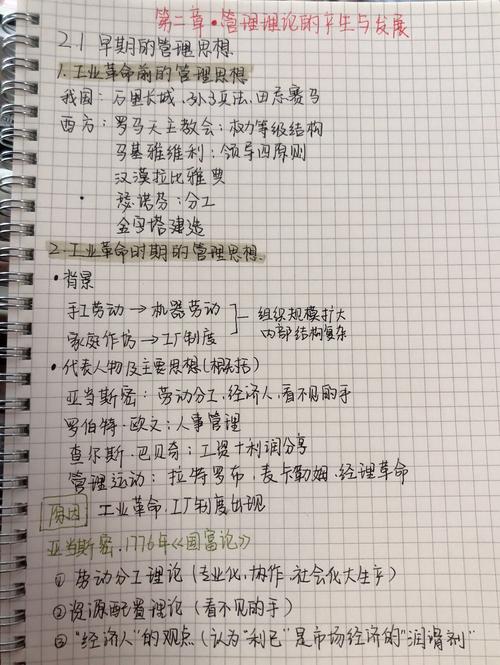 第二章·管理理论的产生与发展
2.1 早期的管理思想
1.工业革命前的管理思想
我国：万里长城、孙子兵法、田忌赛马
西方：罗马天主教会：权力等级结构
马基雅维利：领导四原则
汉漠拉比雅典
·瑟诺芬：分工
金字塔建造
2.工业革命时期的管理思想.
·背景
手工劳动→机器劳动
家庭作坊→工厂制度
组织规模扩大
内部结构复杂
·代表人物及主要思想(概括)
亚当斯密：劳动分工,经济人,看不见的手
罗伯特·欧文：人事管理
查尔斯·巴贝奇：工资+利润分享
管理运动：拉特罗布,麦卡勒姆,经理革命
原因 工业革命,工厂制度出现
亚当斯密,1776年《国富论》
①劳动分工理论（专业化,协作,社会化大生产）
②资源配置理论（看不见的手）
③“经济人”的观点（认为“利己”是市场经济的“润滑剂”